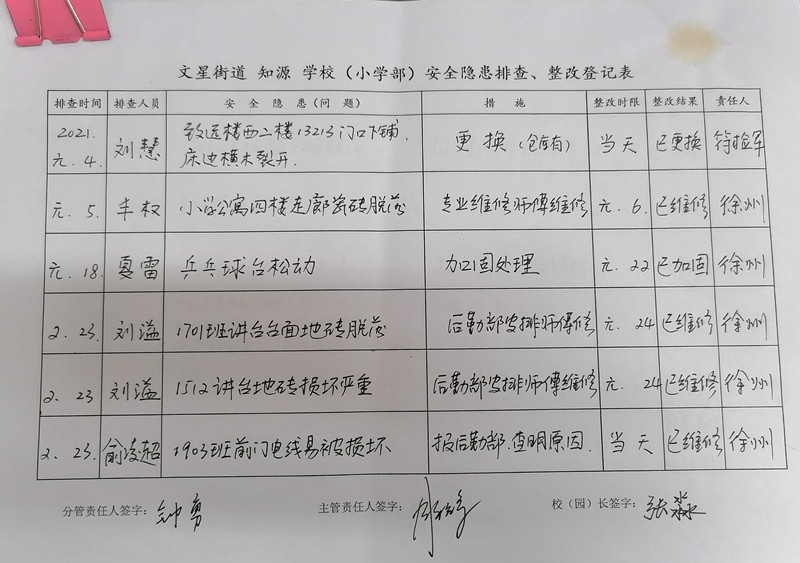 文星街道 知源 学校（小学部）安全隐患排查、整改登记表
排查时间 排查人员 安 全 隐 患（问 题） 措 施 整改时限 整改结果 责任人
2021.
元.4. 刘慧 致远楼西二楼13213门口下铺.
床边横木裂开. 更换（仓库有） 当天 已更换
元.5. 丰权 小学公寓四楼走廊瓷砖脱落 专业维修师傅维修 元.6. 已维修 徐州
元.18. 夏雷 乒乓球台松动 加固处理 元.22 已加固 徐州
2.23. 刘溢 1701班讲台台面地砖脱落 后勤部安排师傅修 元.24 已维修 徐州
2.23 刘溢 1512讲台地砖损坏严重 后勤部安排师傅维修 元.24 已维修 徐州
2.23. 俞凌超 1903班前门电线易被损坏 报后勤部.查明原因. 当天 已维修 徐州
分管责任人签字：钟勇 主管责任人签字： 校（园）长签字：张淼